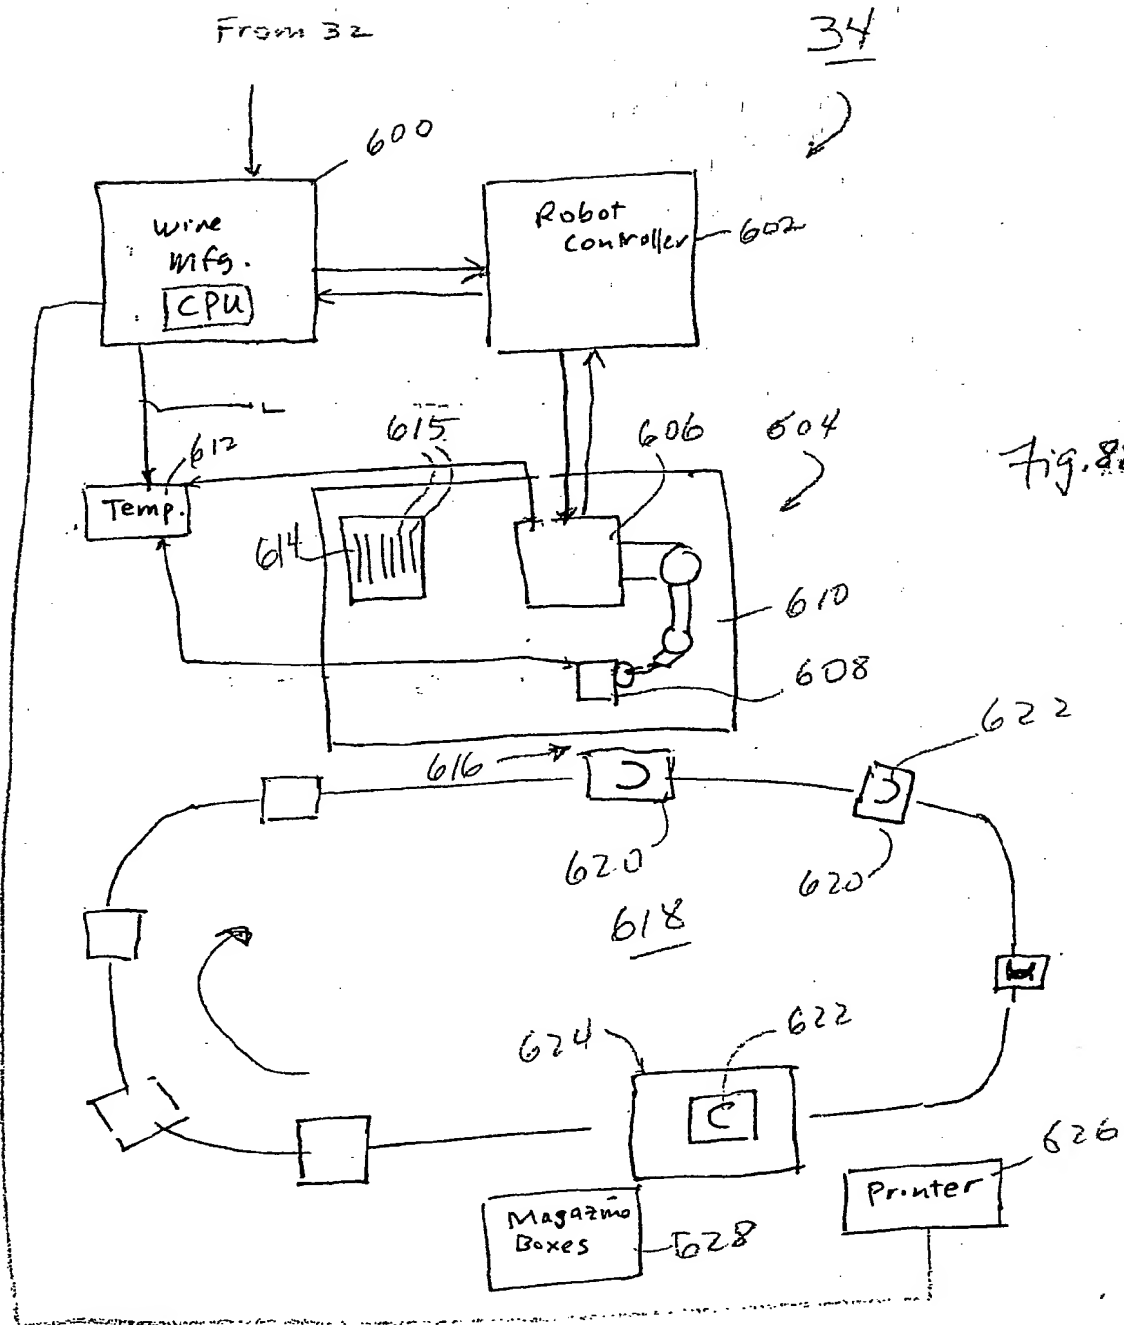 From 32
34
600
Wire
Mfg.
CPU
Robot
Controller
602
L
612
615
606
604
Temp.
614
610
608
616
622
620
620
618
624
622
626
Printer
Magazine
Boxes
628